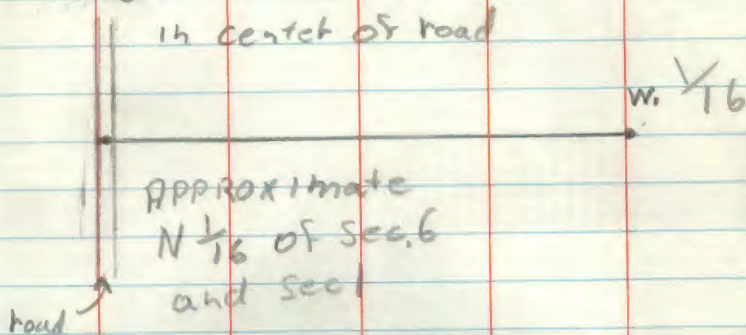 in center of road
W. 1/16
APPROXimate
N 1/16 of Sec. 6
and Sec 1
road